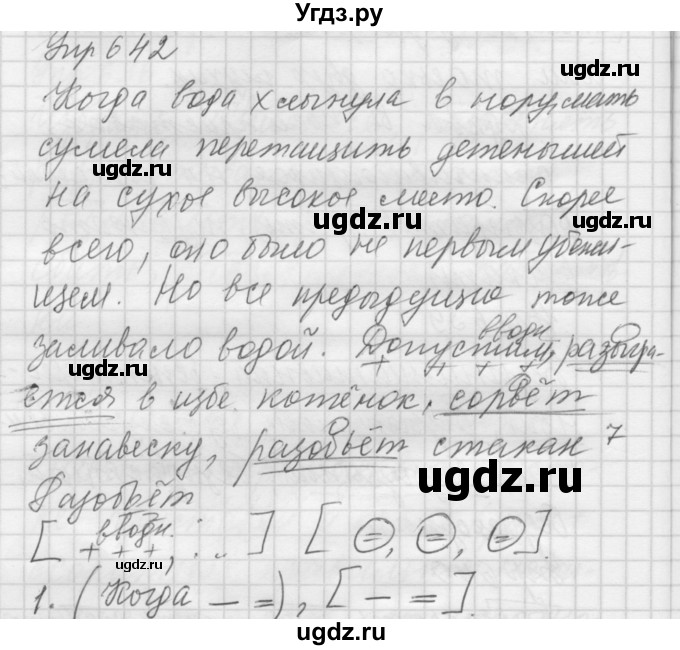 Угдз.ру
Упр 642
Когда вода хлынула в нору, мать
сумела перетащить детенышей
на сухое высокое место. Скорее
всего, оно было не первым убежи-
щем. Но все предыдущие тоже
заливало водой. Допустим, разыгра-
вводн.
ется в избе котёнок, сорвёт
занавеску, разобьёт стакан 7
Разобьёт
[ вводн. +++, : .. ] [ = , = , = ].
1. (Когда — =), [ — = ].
ugdz.ru
ugdz.ru
ugdz.ru
ugdz.ru
ugdz.ru
ugdz.ru
ugdz.ru
ugdz.ru
ugdz.ru
ugdz.ru